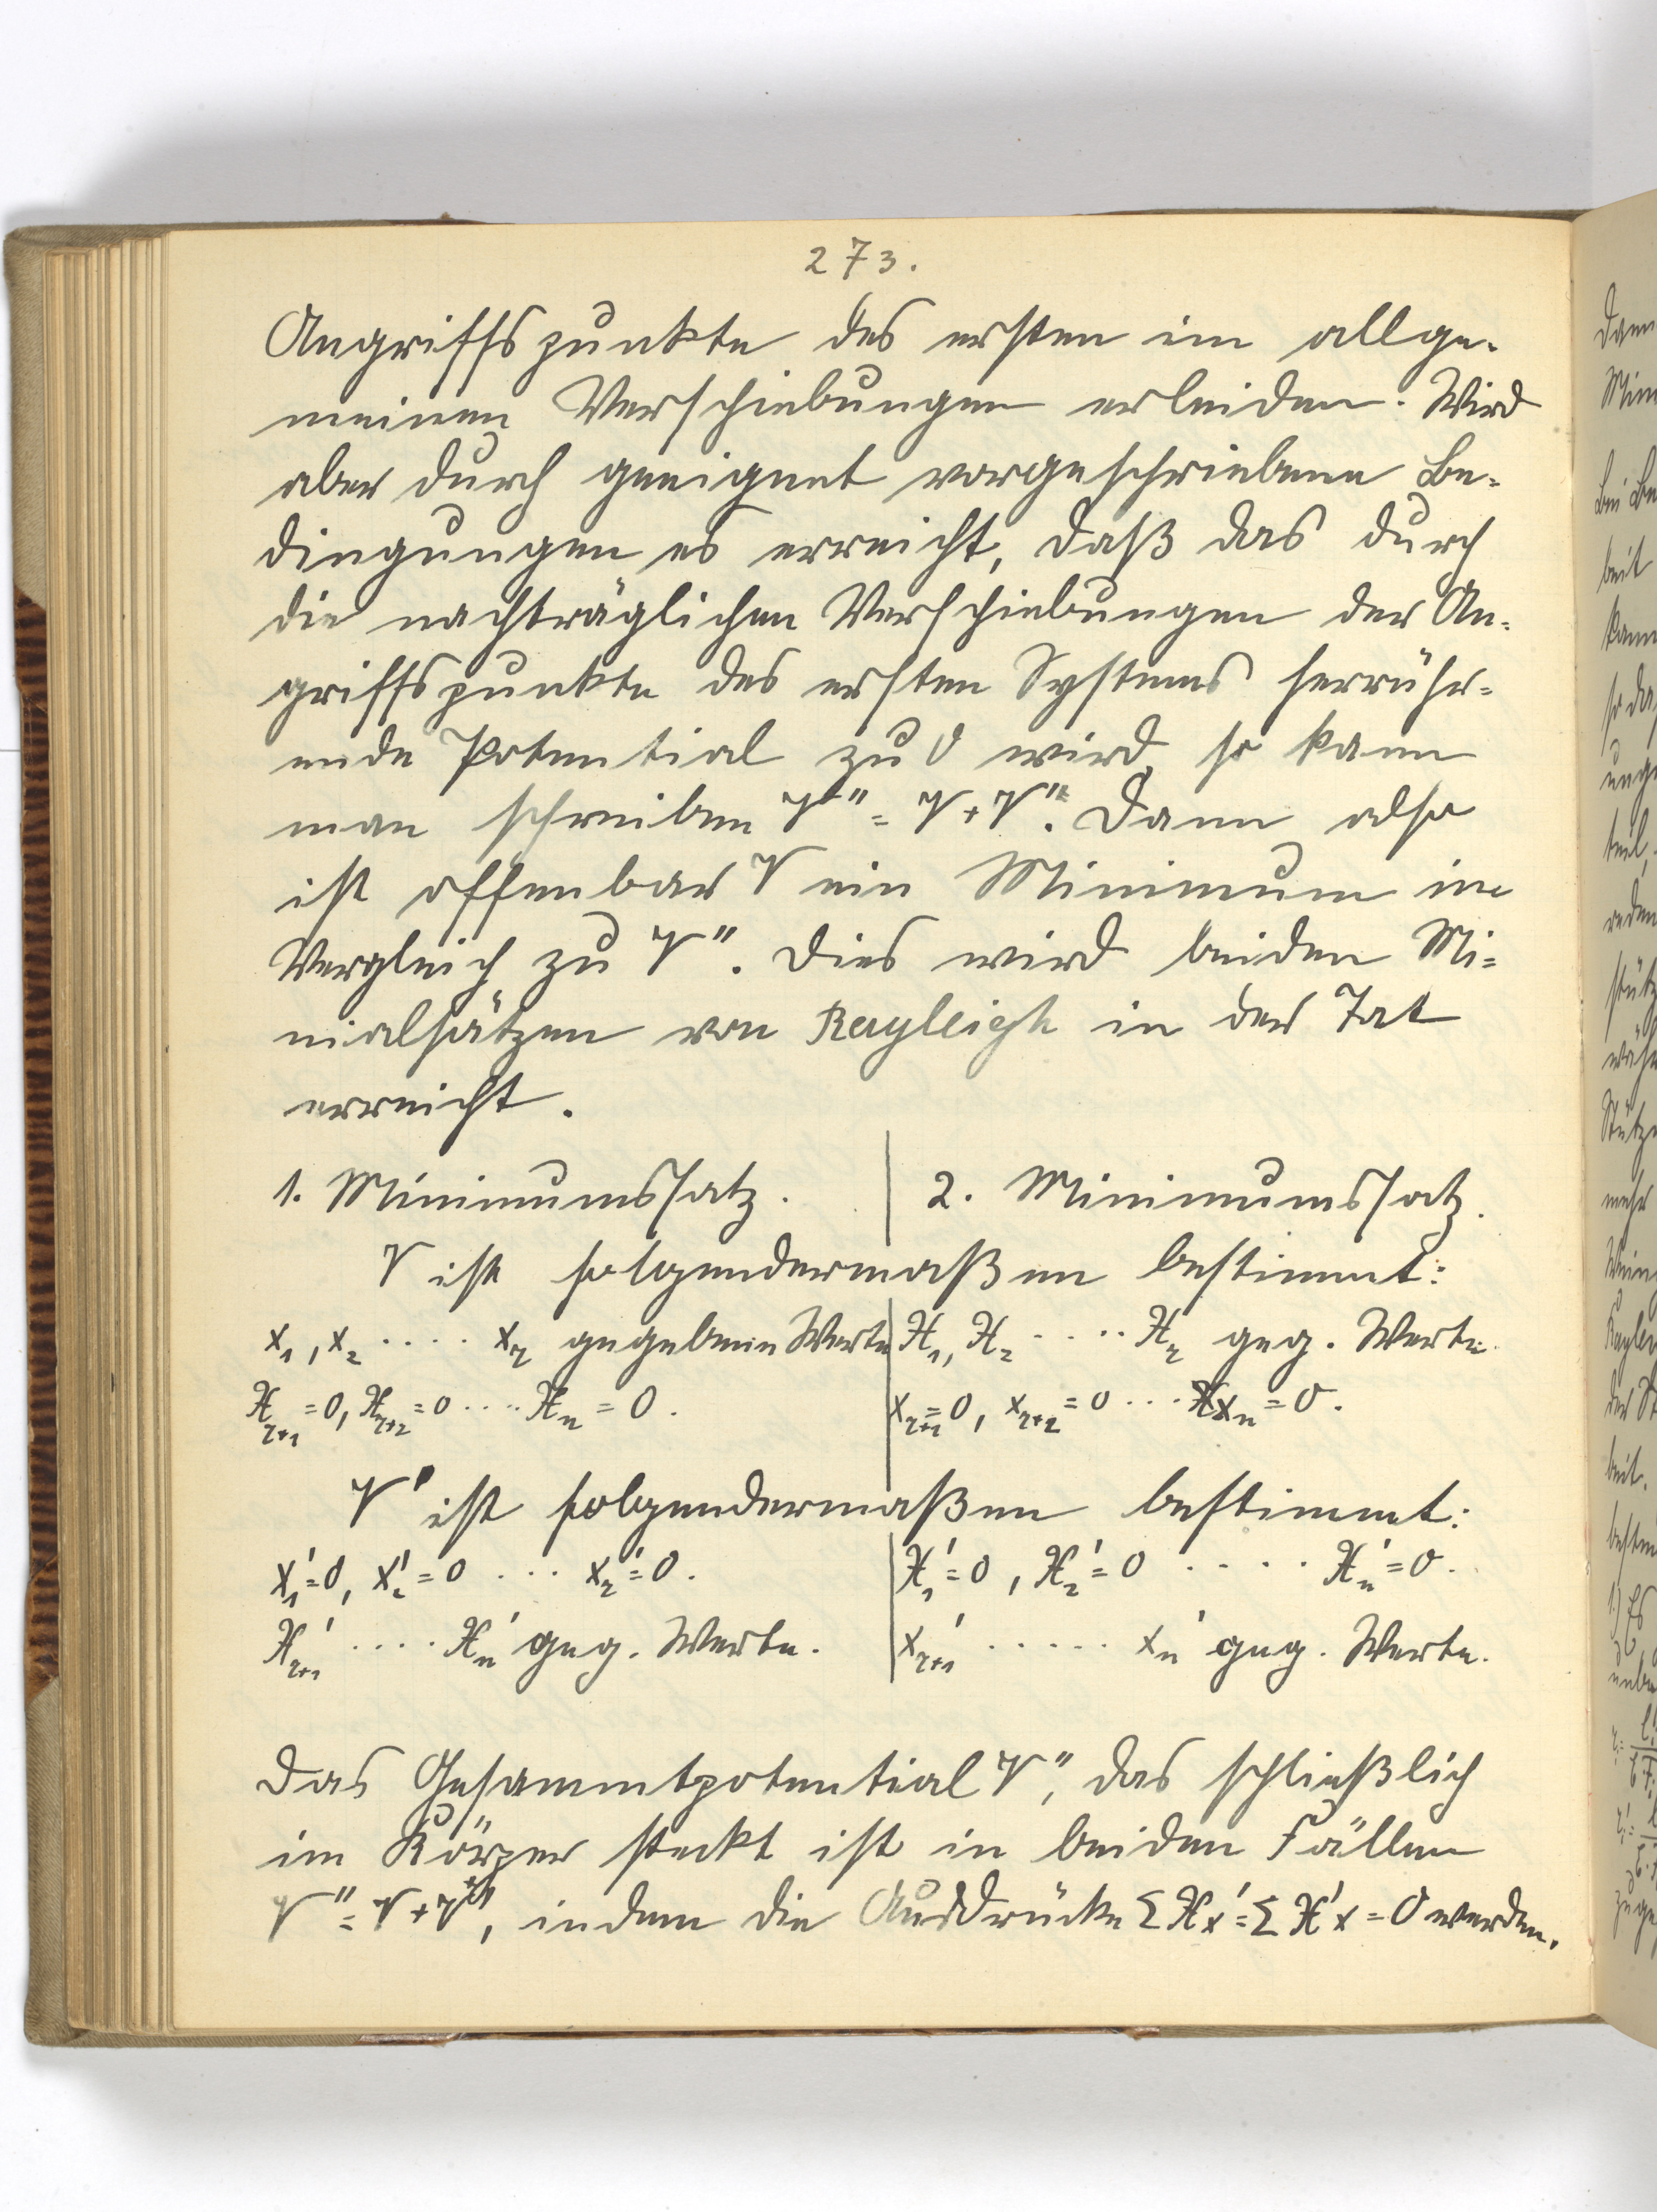 273.
Angriffspunkte des ersten im allge-
meinen Verschiebungen erleiden. Wird
aber durch geeignet vorgeschriebene Be-
dingungen es erreicht, daß das durch
die nachträglichen Verschiebungen der An-
griffspunkte des ersten Systems herrühr-
ende Potential zu 0 wird, so kann
man schreiben V'' = V + V'. Dann also
ist offenbar V ein Minimum im
Vergleich zu V''. Dies wird beiden Mi-
nialsätzen von Rayleigh in der Tat
erreicht.
1. Minimumssatz. | 2. Minimumssatz.
V ist folgendermaßen bestimmt:
x₁, x₂ .... xᵣ gegebene Werte | X₁, X₂ .... Xᵣ geg. Werte.
Xᵣ₊₁ = 0, Xᵣ₊₂ = 0 .... Xₙ = 0. | xᵣ₊₁ = 0, xᵣ₊₂ = 0 ... xₙ = 0.
V' ist folgendermaßen bestimmt:
x₁' = 0, x₂' = 0 ... xᵣ' = 0. | X₁' = 0, X₂' = 0 .... Xₙ' = 0.
Xᵣ₊₁' .... Xₙ' geg. Werte. | xᵣ₊₁' ..... xₙ' geg. Werte.
Das Gesammtpotential V'', das schließlich
im Körper steckt ist in beiden Fällen
V'' = V + V', indem die Ausdrücke Σ X x' = Σ X' x = 0 werden.